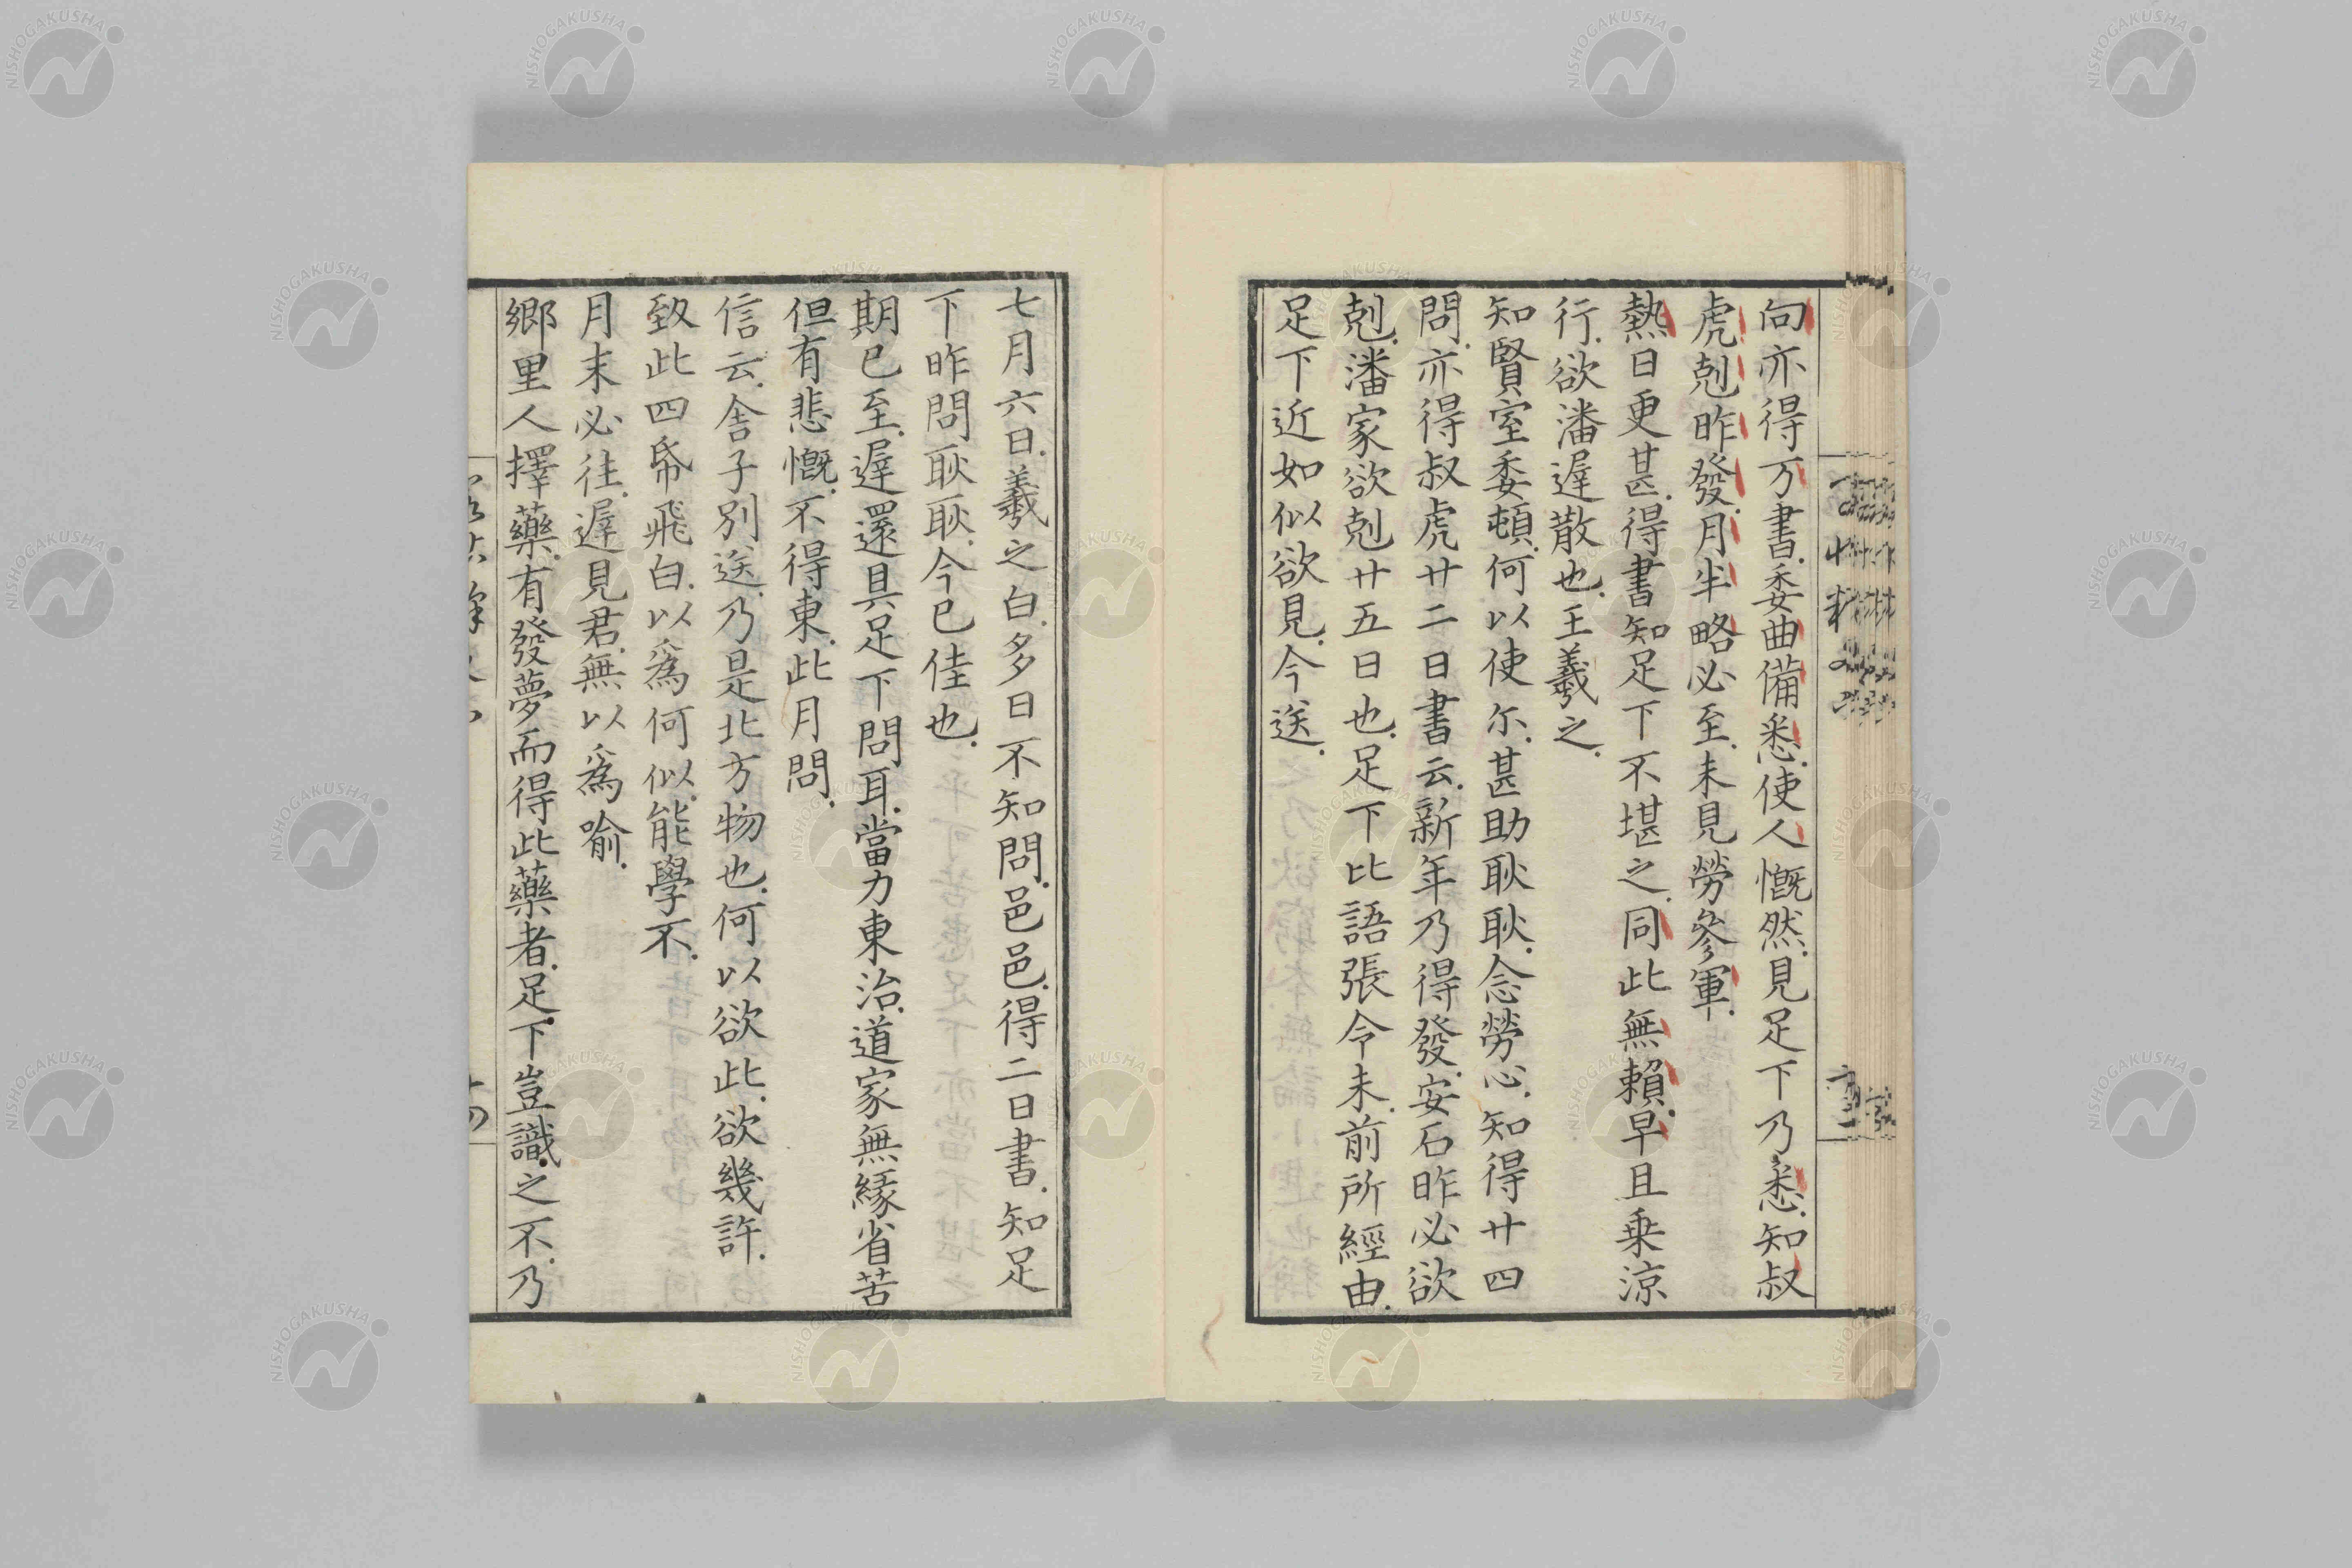 向亦得万書.委曲備悉.使人慨然.見足下乃悉.知叔
虎剋昨發月半略必至.未見勞參軍.
熱日更甚.得書知足下不堪之.同此無賴.早且乗涼
行.欲潘遲散也.王羲之.
知賢室委頓.何以使尓.甚助耿耿.念勞心.知得廿四
問.亦得叔虎廿二日書云.新年乃得發.安石昨必欲
剋.潘家欲剋廿五日也.足下比語張令未.前所經由.
足下近如似欲見.今送.
七月六日.羲之白.多日不知問.邑邑.得二日書.知足
下昨問耿耿.今已佳也.
期已至.遲還具足下問耳.當力東治.道家無緣省苦
但有悲慨.不得東.此月問.
信云.舍子別送.乃是北方物也.何以欲此.欲幾許.
致此四帋飛白.以為何似.能學不.
月末必往.遲見君.無以為喻.
鄉里人擇藥.有發夢而得此藥者.足下豈識之不.乃
NISHOGAKUSHA